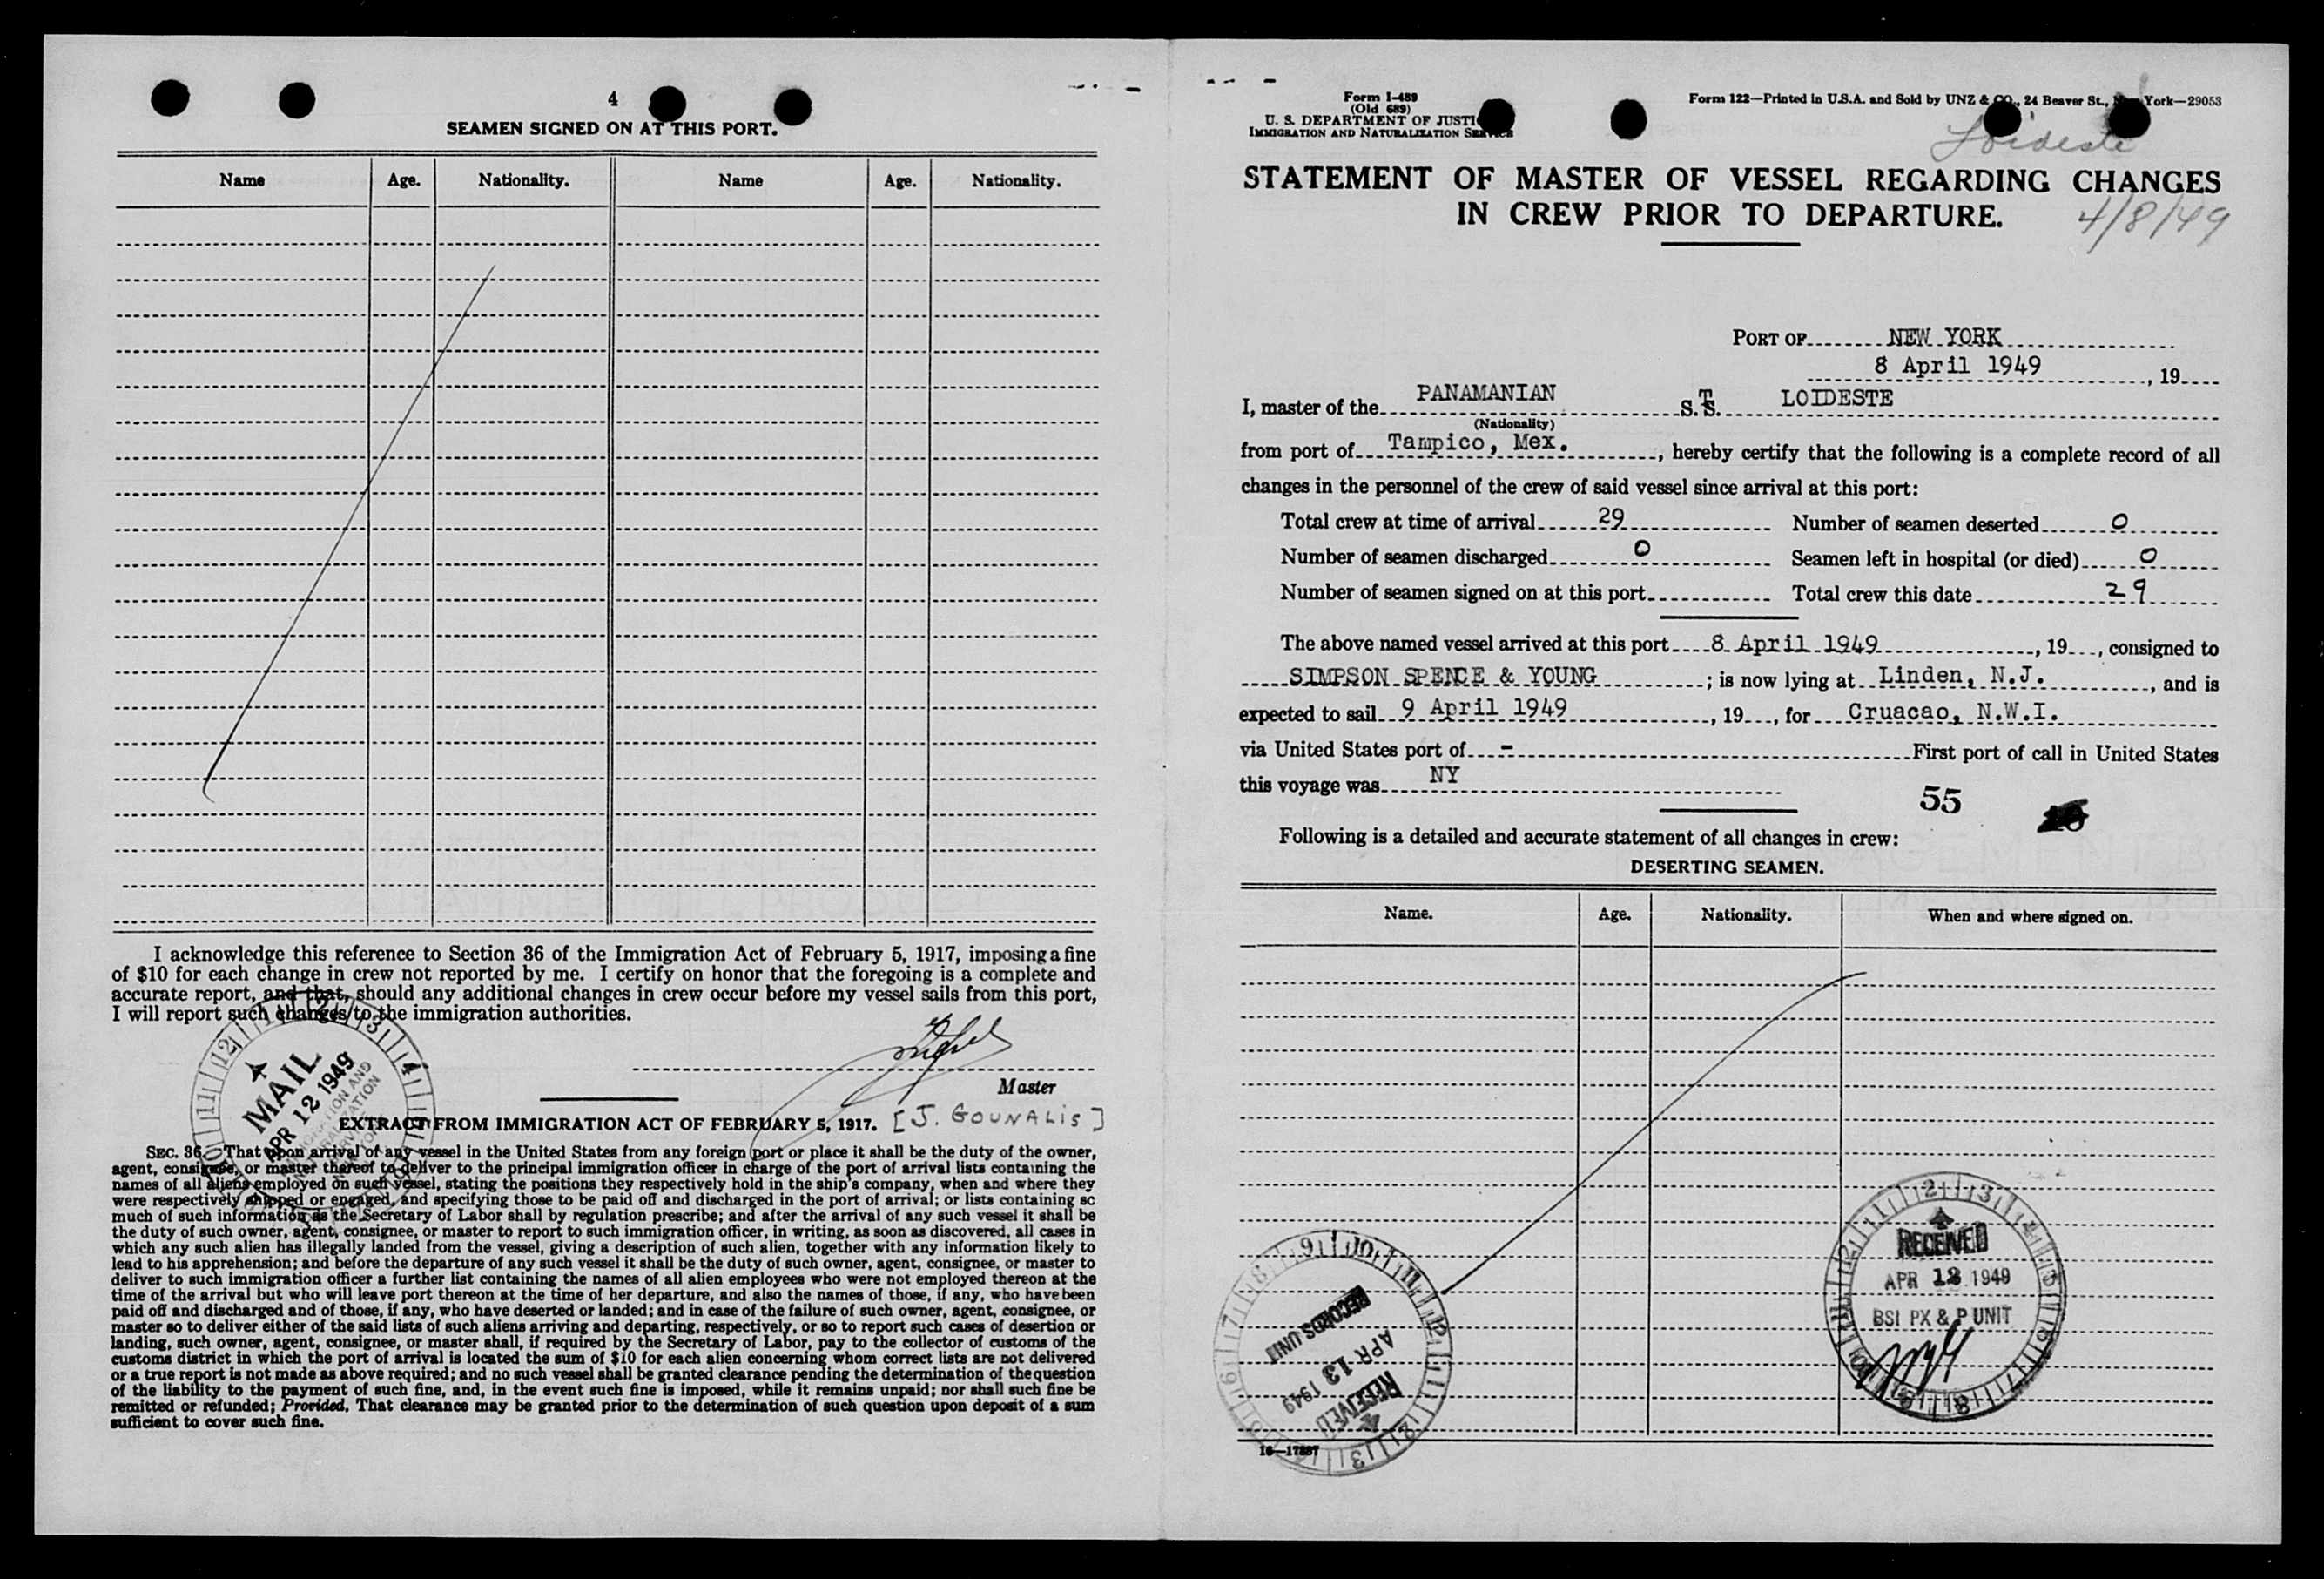 4
SEAMEN SIGNED ON AT THIS PORT.
Name Age. Nationality. Name Age. Nationality.
I acknowledge this reference to Section 36 of the Immigration Act of February 5, 1917, imposing a fine
of $10 for each change in crew not reported by me. I certify on honor that the foregoing is a complete and
accurate report, and that, should any additional changes in crew occur before my vessel sails from this port,
I will report such changes to the immigration authorities.
MAIL
APR 12 1949
Master
EXTRACT FROM IMMIGRATION ACT OF FEBRUARY 5, 1917. [J. GOUNALIS]
SEC. 36. That upon arrival of any vessel in the United States from any foreign port or place it shall be the duty of the owner,
agent, consignee, or master thereof to deliver to the principal immigration officer in charge of the port of arrival lists containing the
names of all aliens employed on such vessel, stating the positions they respectively hold in the ship's company, when and where they
were respectively shipped or engaged, and specifying those to be paid off and discharged in the port of arrival; or lists containing so
much of such information as the Secretary of Labor shall by regulation prescribe; and after the arrival of any such vessel it shall be
the duty of such owner, agent, consignee, or master to report to such immigration officer, in writing, as soon as discovered, all cases in
which any such alien has illegally landed from the vessel, giving a description of such alien, together with any information likely to
lead to his apprehension; and before the departure of any such vessel it shall be the duty of such owner, agent, consignee, or master to
deliver to such immigration officer a further list containing the names of all alien employees who were not employed thereon at the
time of the arrival but who will leave port thereon at the time of her departure, and also the names of those, if any, who have been
paid off and discharged and of those, if any, who have deserted or landed; and in case of the failure of such owner, agent, consignee, or
master so to deliver either of the said lists of such aliens arriving and departing, respectively, or so to report such cases of desertion or
landing, such owner, agent, consignee, or master shall, if required by the Secretary of Labor, pay to the collector of customs of the
customs district in which the port of arrival is located the sum of $10 for each alien concerning whom correct lists are not delivered
or a true report is not made as above required; and no such vessel shall be granted clearance pending the determination of the question
of the liability to the payment of such fine, and, in the event such fine is imposed, while it remains unpaid; nor shall such fine be
remitted or refunded; Provided, That clearance may be granted prior to the determination of such question upon deposit of a sum
sufficient to cover such fine.
Form I-489
(Old 689)
U. S. DEPARTMENT OF JUSTI
IMMIGRATION AND NATURALIZATION SERVICE
Form 122—Printed in U.S.A. and Sold by UNZ & CO., 24 Beaver St., New York—29053
Loideste
STATEMENT OF MASTER OF VESSEL REGARDING CHANGES
IN CREW PRIOR TO DEPARTURE.
4/8/49
PORT OF NEW YORK
8 April 1949, 19
I, master of the PANAMANIAN S.T. S. LOIDESTE
(Nationality)
from port of Tampico, Mex., hereby certify that the following is a complete record of all
changes in the personnel of the crew of said vessel since arrival at this port:
Total crew at time of arrival 29 Number of seamen deserted 0
Number of seamen discharged 0 Seamen left in hospital (or died) 0
Number of seamen signed on at this port Total crew this date 29
The above named vessel arrived at this port 8 April 1949, 19, consigned to
SIMPSON SPENCE & YOUNG; is now lying at Linden, N.J., and is
expected to sail 9 April 1949, 19, for Cruacao, N.W.I.
via United States port of - First port of call in United States
this voyage was NY
55
Following is a detailed and accurate statement of all changes in crew:
DESERTING SEAMEN.
Name. Age. Nationality. When and where signed on.
RECEIVED
APR 12 1949
BSI PX & P UNIT
RECORDS UNIT
APR 13 1949
RECEIVED
16—17887